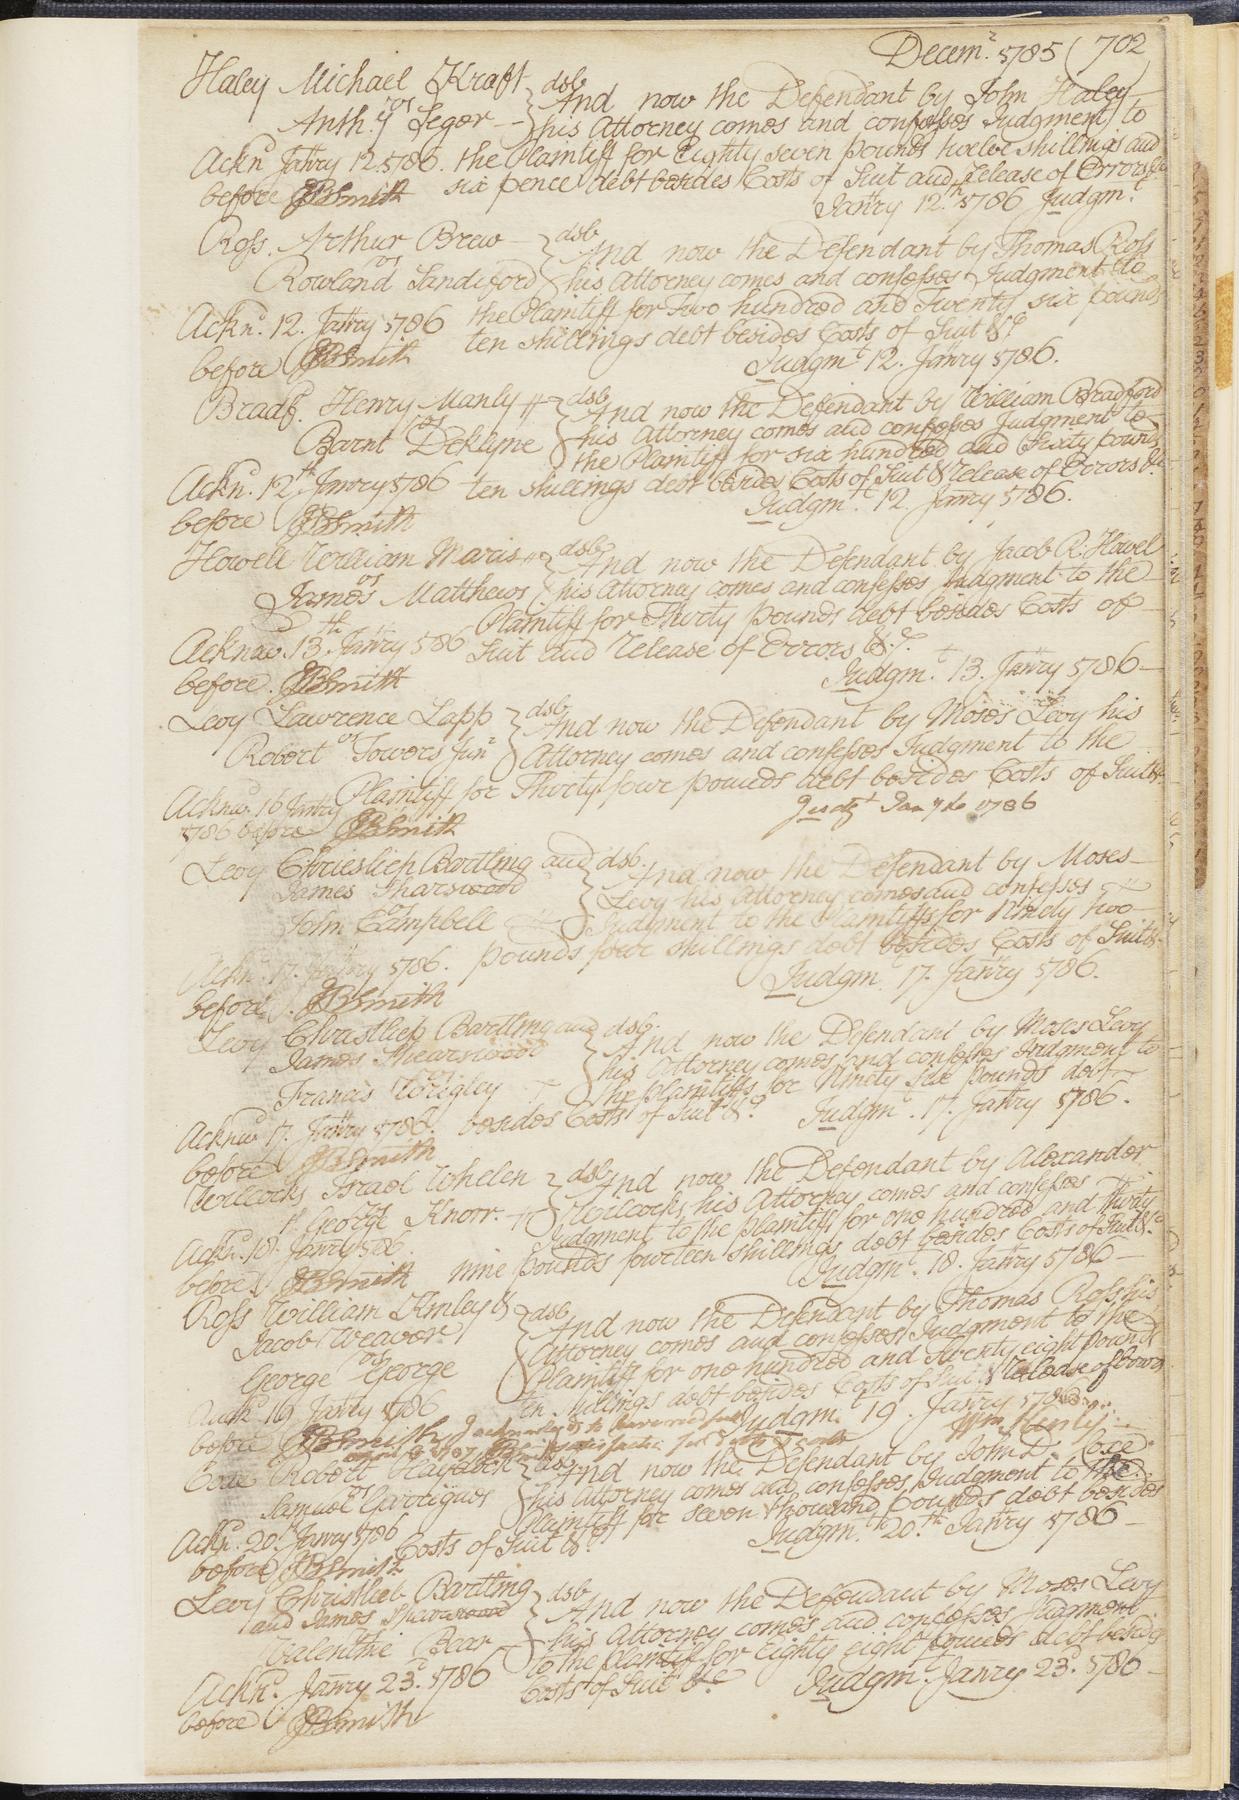 Decemr. 1785 (702
Haley Michael Kraft } dsb
vs
Anth.y Leger } And now the Defendant by John Haley
his Attorney comes and confesses Judgment to
Acknd. Janry 12. 1786. the Plaintiff for Eighty seven pounds twelve shillings and
before JBSmith six pence debt besides Costs of Suit and release of Errors &c
Janry 12th. 1786 Judgmt.
Ross. Arthur Brew } dsb
vs
Rowland Sandiford } And now the Defendant by Thomas Ross
his Attorney comes and confesses Judgment to
Acknd. 12. Janry 1786 the Plaintiff for Two hundred and Twenty six pounds
before JBSmith ten shillings debt besides Costs of Suit &c
Judgmt 12. Janry 1786.
Bradf. Henry Manly } dsb
vs
Barnt DeKlyne } And now the Defendant by William Bradford
his Attorney comes and confesses Judgment to
the Plaintiff for six hundred and Sixty pounds
Acknd. 12th Janry 1786 ten shillings debt besides Costs of Suit & release of Errors &c
before JBSmith Judgmt. 12. Janry 1786.
Howell William Maris } dsb
vs
James Matthews } And now the Defendant by Jacob R. Howel
his Attorney comes and confesses Judgment to the
Plaintiff for Thirty pounds debt besides Costs of
Acknd. 13th Janry 1786 Suit and release of Errors &c.
before JBSmith Judgmt. 13. Janry 1786
Levy Lawrence Lapp } dsb
vs
Robert Towers Junr } And now the Defendant by Moses Levy his
Attorney comes and confesses Judgment to the
Acknd. 16 Janry Plaintiff for Thirty four pounds debt besides Costs of Suit &c
1786 before JBSmith Judgt Jany 16 1786
Levy Christlieb Bartling and } dsb.
James Sharswood
vs
John Campbell } And now the Defendant by Moses
Levy his Attorney comes and confesses
Judgment to the Plaintiffs for Ninety two
Acknd. 17. Janry 1786. pounds four shillings debt besides Costs of Suit &c
before JBSmith Judgmt 17. Janry 1786.
Levy Christlieb Bartling and } dsb.
James Shearswood
vs
Francis Wrigley } And now the Defendant by Moses Levy
his Attorney comes and confesses Judgment to
the Plaintiffs for Ninety five pounds debt
Acknd. 17. Janry 1786. besides Costs of Suit &c Judgmt. 17. Janry 1786.
before JBSmith
Wilcocks Israel Whelen } dsb
vs
George Knorr. } And now the Defendant by Alexander
Wilcocks, his Attorney comes and confesses
Judgment to the plaintiff for one hundred and Thirty
Acknd. 18. Janry 1786. nine pounds fourteen shillings debt besides Costs of Suit &c.
before JBSmith Judgmt. 18. Janry 1786
Ross William Kinley &
Jacob Weaver } dsb
vs
George George } And now the Defendant by Thomas Ross his
Attorney comes and confesses Judgment to the
Plaintiff for one hundred and Twenty eight pounds
ten shillings debt besides Costs of Suit & release of Errors
Acknd. 19 Janry 1786 Judgmt. 19. Janry 1786
before JBSmith I acknowledge to have received full satisfaction for debt & costs
Wm. Kenly
Coxe Robert Haydock } dsb
vs
Samuel Garrigues } And now the Defendant by John D. Coxe
his Attorney comes and confesses Judgment to the
Plaintiff for seven thousand pounds debt besides
Acknd. 20. Janry 1786 Costs of Suit &c Judgmt. 20.th Janry 1786
before JBSmith
Levy Christlieb Bartling } dsb
and James Sharswood
Valentine Bear } And now the Defendant by Moses Levy
his Attorney comes and confesses Judgment
to the plaintiff for Eighty eight pounds debt besides
Acknd. Janry 23d. 1786 Costs of Suit &c Judgmt. Janry 23d. 1786
before JBSmith